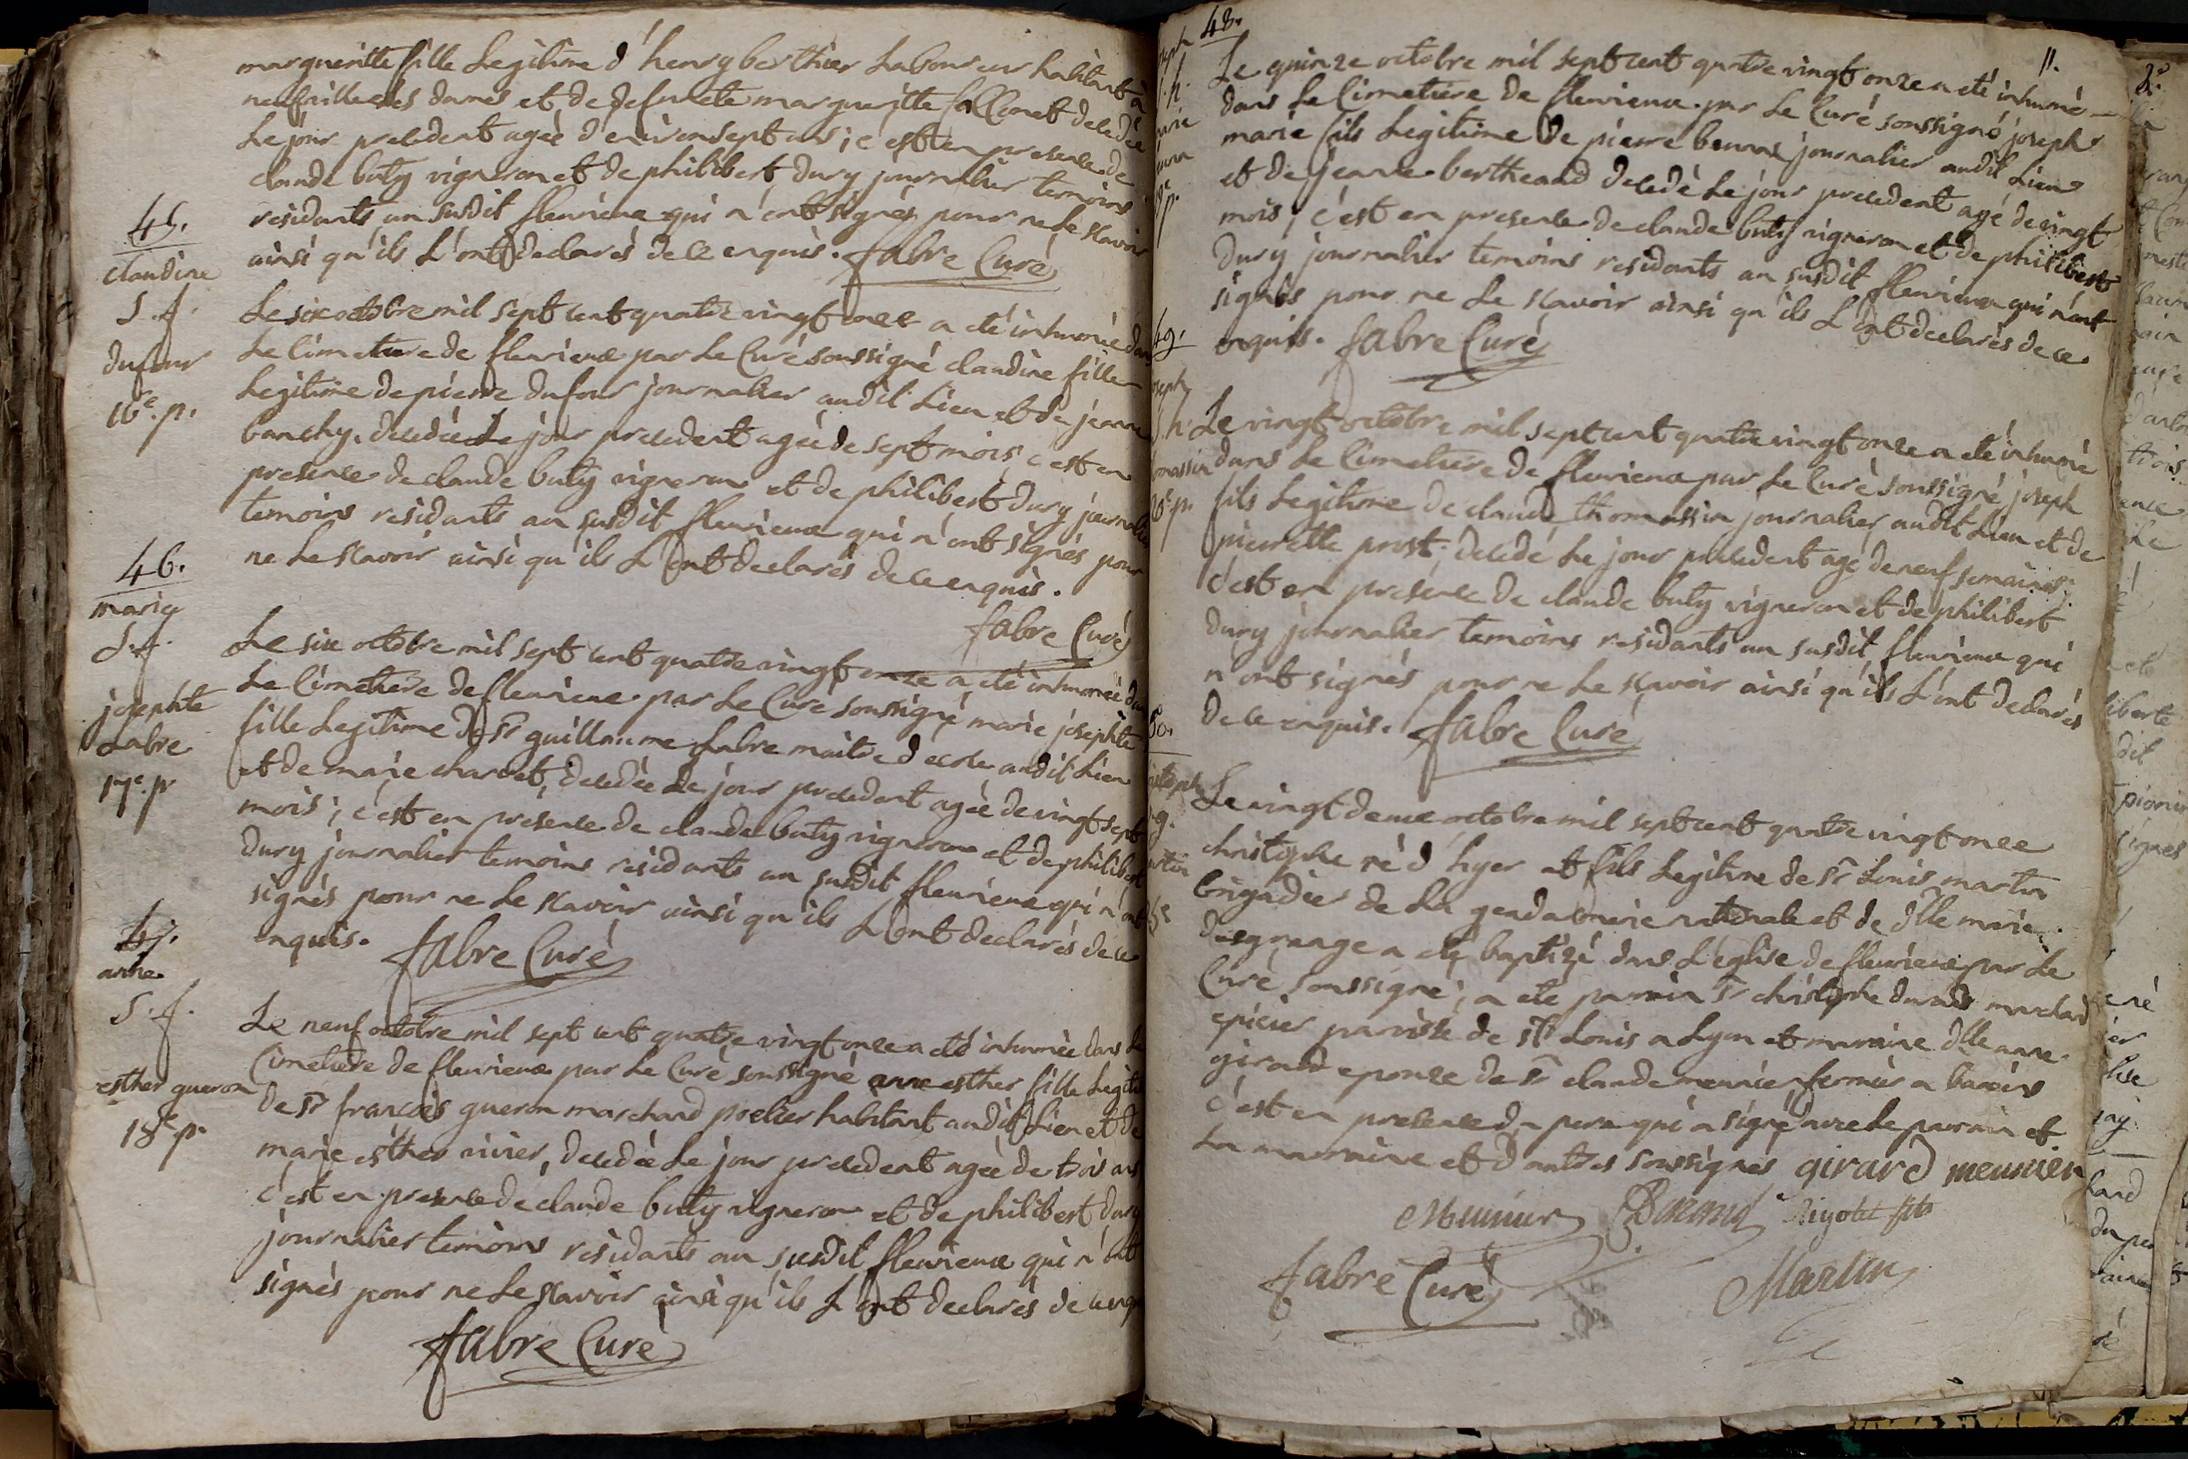 margueritte fille Legitime d'henry berthier Laboureur habitant à
neufville les dames et de defuncte margueritte follionet decedée
Le jour precedent agée d'environ sept ans; c'est en presence de
claude buty vigneron et de philibert Dury journalier temoins
residants au susdit fleurieux qui n'ont signés pour ne le scavoir
ainsi qu'ils L'ont declarés de ce enquis. fabre Curé
45.
claudine
S. f.
dufour
16e. p.
Le six octobre mil sept cent quatre vingt onze a été inhumée dans
Le Cimetiere de fleurieux par Le Curé soussigné claudine fille
Legitime de pierre dufour journalier audit Lieu et de jeanne
banchy, decedée Le jour precedent agée de sept mois; c'est en
presence de claude buty vigneron et de philibert Dury journalier
temoins residants au susdit fleurieux qui n'ont signés pour
ne Le scavoir ainsi qu'ils L'ont declarés de ce enquis.
fabre Curé
46.
marie
S. f.
josephte
Labre
17e. p
Le six octobre mil sept cent quatre vingt onze a été inhumée dans
Le Cimetiere de fleurieux par Le Curé soussigné marie josephte
fille Legitime de Sr guillaume Labre maitre d'ecole audit Lieu
et de marie charvet, decedée Le jour precedent agée de vingt sept
mois; c'est en presence de claude buty vigneron et de philibert
Dury journalier temoins residants au susdit fleurieux qui n'ont
signés pour ne Le scavoir ainsi qu'ils L'ont declarés de ce
enquis. fabre Curé
47.
anne
S. f.
esther gueron
18e p.
Le neuf octobre mil sept cent quatre vingt onze a été inhumée dans Le
Cimetiere de fleurieux par Le Curé soussigné anne esther fille Legiti
De Sr françois gueron marchand poelier habitant audit Lieu et de
marie esther vivier, decedée Le jour precedent agée de trois ans
c'est en presence de claude buty vigneron et de philibert Dury
journalier temoins residants au susdit fleurieux qui n'ont
signés pour ne Le scavoir ainsi qu'ils L'ont declarés de ce enquis
fabre Curé
48.
11.
Le quinze octobre mil sept cent quatre vingt onze a été inhumé
dans Le Cimetiere de fleurieux par Le Curé soussigné joseph
marie fils Legitime de pierre journalier audit Lieu
et de jeanne bertheaud decedé Le jour precedent agé de vingt
mois; c'est en presence de claude buty vigneron et de philibert
Dury journalier temoins residants au susdit fleurieux qui n'ont
signés pour ne Le scavoir ainsi qu'ils L'ont declarés de ce
enquis. fabre Curé
49.
Le vingt octobre mil sept cent quatre vingt onze a été inhumé
dans Le Cimetiere de fleurieux par Le Curé soussigné joseph
fils Legitime de claude thomassin journalier audit Lieu et de
pierrette prost, decedé Le jour precedent agé de neuf semaines;
c'est en presence de claude buty vigneron et de philibert
Dury journalier temoins residants au susdit fleurieux qui
n'ont signés pour ne Le scavoir ainsi qu'ils L'ont declarés
de ce enquis. fabre Curé
50.
Le vingt deux octobre mil sept cent quatre vingt onze
christophe né d'hyer et fils Legitime de Sr Louis martin
brigadier de La gendarmerie nationale et de dlle marie
desgrange a été baptizé dans L'église de fleurieux par Le
Curé soussigné; a eté parrain Sr christophe durand marchand
epicier paroisse de St Louis a Lyon et marraine dlle anne
girard epouze de Sr claude meunier fermier a baxins
c'est en presence du pere qui a signé avec Le parrain et
La marraine et d'autres soussignés girard meunier
Meunier Durand Rigolet fils
fabre Curé Martin